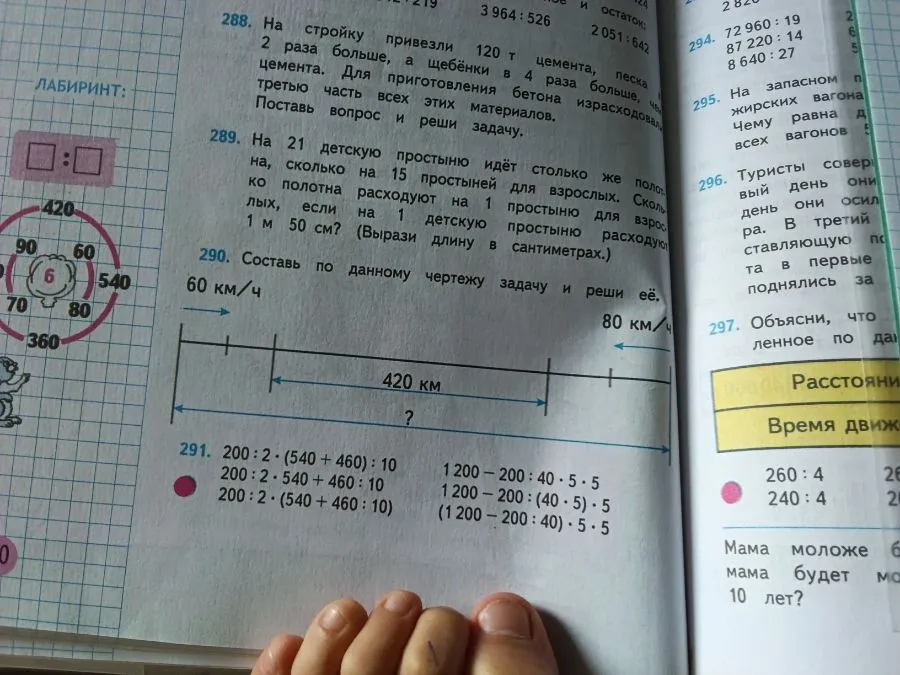 3 964 : 526
2 051 : 642
и остаток:
288. На стройку привезли 120 т цемента, песка
2 раза больше, а щебёнки в 4 раза больше,
цемента. Для приготовления бетона израсходовал
третью часть всех этих материалов.
Поставь вопрос и реши задачу.
289. На 21 детскую простыню идёт столько же полот-
на, сколько на 15 простыней для взрослых. Сколь-
ко полотна расходуют на 1 простыню для взрос-
лых, если на 1 детскую простыню расходуют
1 м 50 см? (Вырази длину в сантиметрах.)
290. Составь по данному чертежу задачу и реши её.
60 км/ч
80 км/ч
420 км
?
291. 200 : 2 · (540 + 460) : 10
200 : 2 · 540 + 460 : 10
200 : 2 · (540 + 460 : 10)
1 200 − 200 : 40 · 5 · 5
1 200 − 200 : (40 · 5) · 5
(1 200 − 200 : 40) · 5 · 5
ЛАБИРИНТ:
:
420
90
60
6
540
70
80
360
294. 72 960 : 19
87 220 : 14
8 640 : 27
295. На запасном
жирских вагона
Чему равна
всех вагонов
296. Туристы
вый день они
день они
ра. В третий
ставляющую
та в первые
поднялись за
297. Объясни, что
ленное по
Расстояни
Время движ
260 : 4
240 : 4
Мама моложе
мама будет
10 лет?